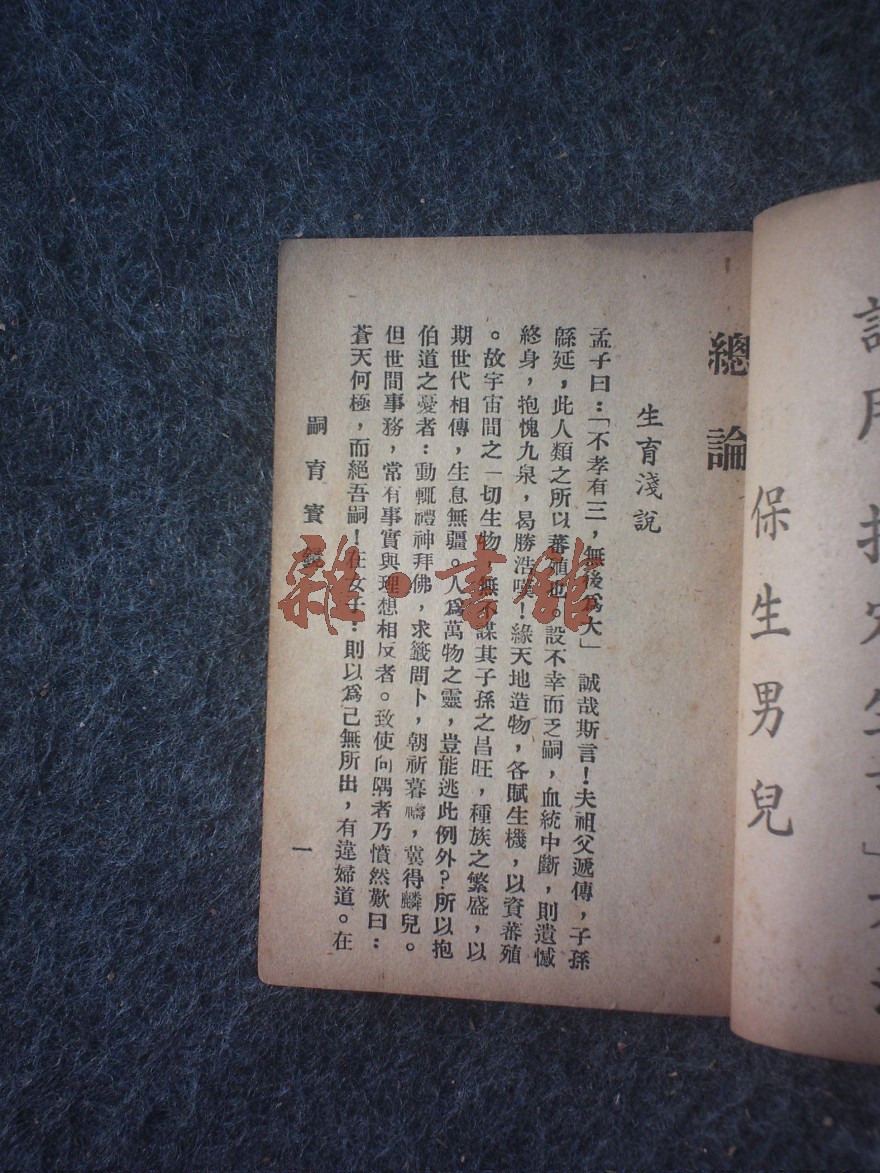 保生男兒
總論
生育淺說
孟子曰：「不孝有三，無後爲大」誠哉斯言！夫祖父遞傳，子孫
緜延，此人類之所以蕃殖也。設不幸而乏嗣，血統中斷，則遺憾
終身，抱愧九泉，曷勝浩嘆！緣天地造物，各賦生機，以資蕃殖
。故宇宙間之一切生物，無不謀其子孫之昌旺，種族之繁盛，以
期世代相傳，生息無疆。人爲萬物之靈，豈能逃此例外？所以抱
伯道之憂者：動輒禮神拜佛，求籤問卜，朝祈暮禱，冀得麟兒。
但世間事務，常有事實與理想相反者。致使向隅者乃憤然歎曰：
蒼天何極，而絕吾嗣！在女士：則以爲己無所出，有違婦道。在
嗣育寳鏡
一
雜·書館